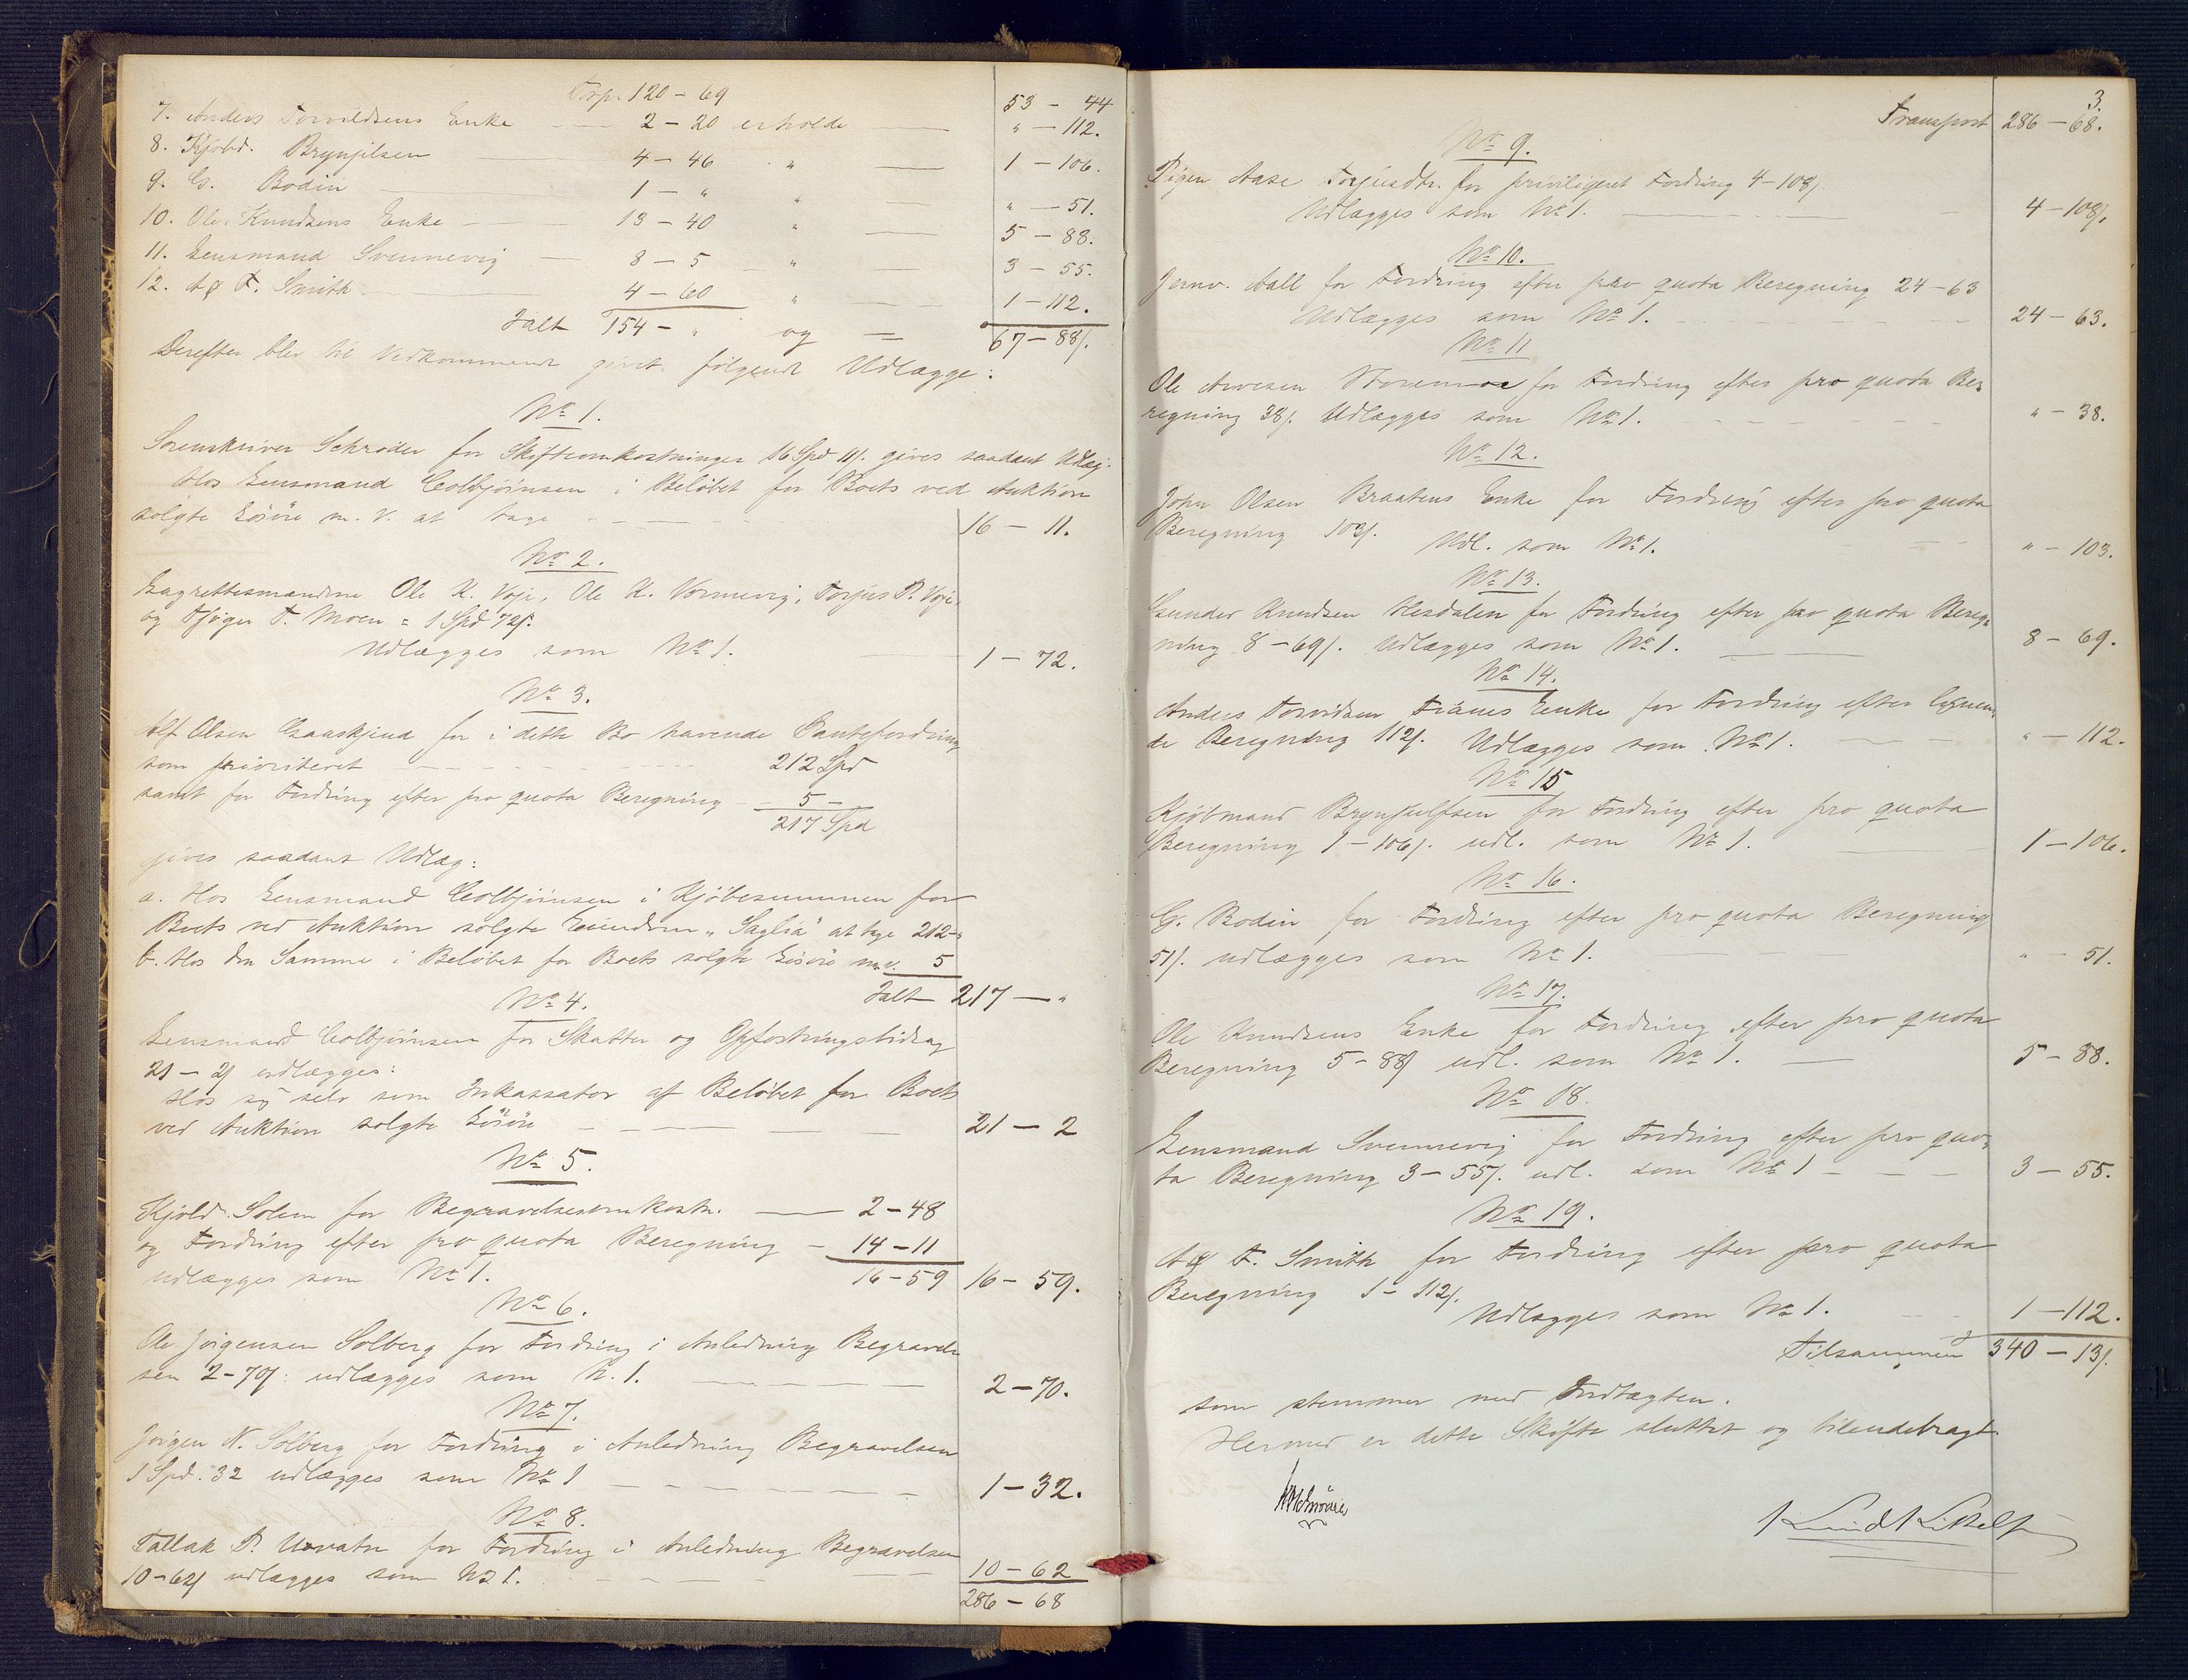 Trsp. 120 - 69 53 - 44
7. Anders Torvildsens Enke 2 - 20 erholde " - 112.
8. Kjøbd. Brynjilsen 4 - 46 " 1 - 106.
9. G. Bodin 1 - " " " - 51.
10. Ole Knudsens Enke 13 - 40 " 5 - 88.
11. Lensmand Svennevig 8 - 5 " 3 - 55.
12. A & T. Smith 4 - 60 " 1 - 112.
Ialt 154 - " og 67 - 88/.
Derefter blev til Vedkommende givet følgende Udlægge:
No 1.
Sorenskriver Schrøder for Skifteomkostninger 16 Spd 11/. gives saadant Udlæg:
Hos Lensmand Colbjørnsen i Beløbet for Boets ved Auktion
solgte Løsøre m. v. at tage 16 - 11.
No 2.
Lagrettesmændene Ole K. Voje, Ole K. Vormevig, Torjus P. Voje,
og Tjøger T. Moen = 1 Spd 72/.
Udlægges som No 1. 1 - 72.
No 3.
Alf Olsen Gaaskjend for i dette Bo havende Pantefordring
som prioriteret 212 Spd
samt for Fordring efter pro quota Beregning 5 -
217 Spd
gives saadant Udlæg:
a. Hos Lensmand Colbjørnsen i Kjøbesummen for
Boets ved Auktion solgte Eiendom „Saglia" at tage 212 - "
b. Hos den Samme i Beløbet for Boets solgte Løsøre m.v. 5
Ialt 217 - "
No 4.
Lensmand Colbjørnsen for Skatter og Opfostringsbidrag
21 - 2/ udlægges:
Hos sig selv som Inkassator af Beløbet for Boets
ved Auktion solgte Løsøre 21 - 2
No 5.
Kjøbd. Solem for Begravelsesomkostn. 2 - 48
og Fordring efter pro quota Beregning - 14 - 11
udlægges som No 1. 16 - 59 16 - 59.
No 6.
Ole Jørgensen Solberg for Fordring i Anledning Begravel-
sen 2 - 70/: udlægges som N. 1. 2 - 70.
No 7.
Jørgen N. Solberg for Fordring i Anledning Begravelsen
1 Spd. 32 udlægges som No 1 1 - 32.
No 8.
Tallak P. Urvatn for Fordring i Anledning Begravelsen
10 - 62/ udlægges som No 1. 10 - 62
286 - 68
3.
Transport 286 - 68.
No 9.
Pigen Aase Torjusdtr. for priviligeret Fordring 4 - 108/.
Udlægges som No 1. 4 - 108/.
No 10.
Jernv. Aall for Fordring efter pro quota Beregning 24 - 63
Udlægges som No 1. 24 - 63.
No 11
Ole Arvesen Storemoe for Fordring efter pro quota Be-
regning 38/. Udlægges som No 1. " - 38.
No 12.
John Olsen Braatens Enke for Fordring efter pro quota
Beregning 103/. Udl. som No 1. " - 103.
No 13.
Gunder Knudsen Hesdalen for Fordring efter pro quota Bereg-
ning 8 - 69/. Udlægges som No 1. 8 - 69.
No 14.
Anders Torvildsen Enke for Fordring efter lignen-
de Beregning 112/. Udlægges som No 1. " - 112.
No 15
Kjøbmand Brynjulfsen for Fordring efter pro quota
Beregning 1 - 106/. udl. som No 1. 1 - 106.
No 16.
G. Bodin for Fordring efter pro quota Beregning
51/. udlægges som No 1. " - 51.
No 17.
Ole Knudsens Enke for Fordring efter pro quota
Beregning 5 - 88/ udl. som No 1. 5 - 88.
No 18.
Lensmand Svennevig for Fordring efter pro quo-
ta Beregning 3 - 55/. udl. som No 1 3 - 55.
No 19.
A & T. Smith for Fordring efter pro quota
Beregning 1 - 112/.
Udlægges som No 1. 1 - 112.
Tilsammen 340 - 13/.
som stemmer med Indtægten.
Hermed er dette Skifte sluttet og tilendebragt
Knud Kittelsen